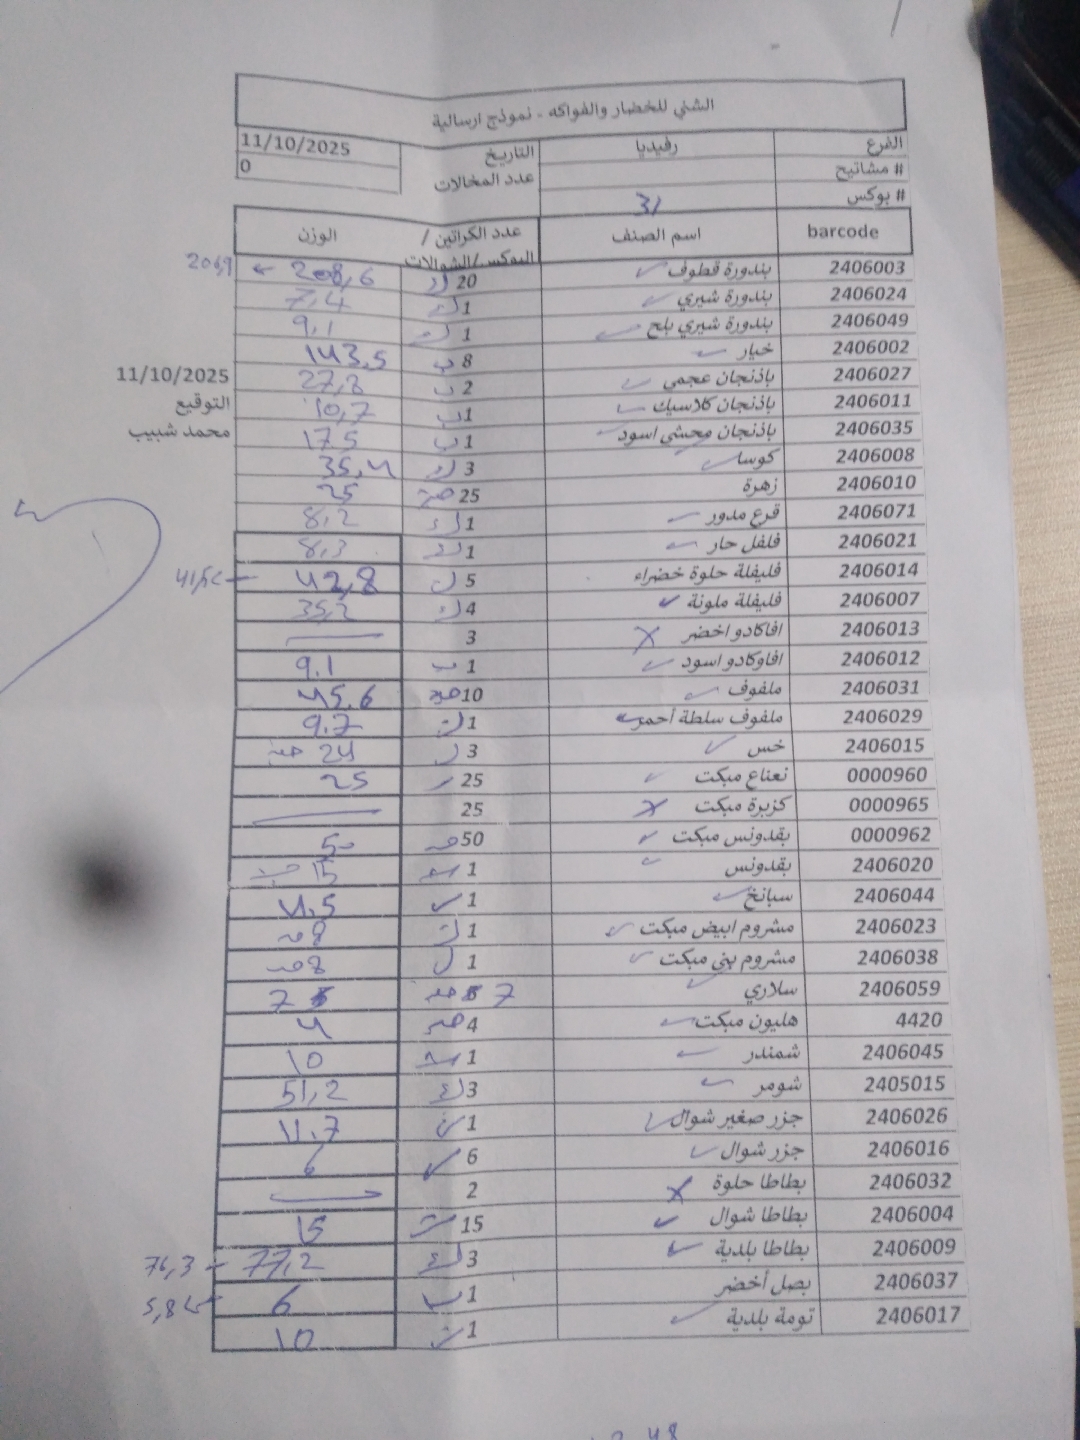 الشني للخضار والفواكه - نموذج ارسالية
الفرع رفيديا التاريخ 11/10/2025
# مشاتيح عدد المخالات 0
# بوكس 31
barcode اسم الصنف عدد الكراتين / البوكس/الشوالات الوزن
2406003 بندورة قطوف 20 208,6
2406024 بندورة شيري 1 7,4
2406049 بندورة شيري بلح 1 9,1
2406002 خيار 8 ب 143.5
2406027 باذنجان عجمي 2 ب 27,3
2406011 باذنجان كلاسيك 1 ب 10,7
2406035 باذنجان محشي اسود 1 ب 17.5
2406008 كوسا 3 35,4
2406010 زهرة 25 حبة 25
2406071 قرع مدور 1 8,2
2406021 فلفل حار 1 8,3
2406014 فليفلة حلوة خضراء 5 42,8
2406007 فليفلة ملونة 4 35,2
2406013 افاكادو اخضر 3
2406012 افاوكادو اسود 1 ب 9.1
2406031 ملفوف 10 حبة 45.6
2406029 ملفوف سلطة أحمر 1 9.7
2406015 خس 3 24 حبة
0000960 نعناع مبكت 25 25
0000965 كزبرة مبكت 25
0000962 بقدونس مبكت 50 50
2406020 بقدونس 1 15
2406044 سبانخ 1 4.5
2406023 مشروم ابيض مبكت 1 8
2406038 مشروم بني مبكت 1 8
2406059 سلاري 7 7
4420 هليون مبكت 4 4
2406045 شمندر 1 10
2405015 شومر 3 51,2
2406026 جزر صغير شوال 1 4.7
2406016 جزر شوال 6 6
2406032 بطاطا حلوة 2
2406004 بطاطا شوال 15 15
2406009 بطاطا بلدية 3 77,2 76,3
2406037 بصل أخضر 1 ب 6 5,8
2406017 تومة بلدية 1 10
11/10/2025
التوقيع
محمد شبيب